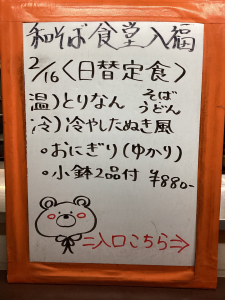 和そば食堂入福
2/16〈日替定食〉
温)とりなん そば うどん
冷)冷やしたぬき風
・おにぎり(ゆかり)
・小鉢2品付 ¥880-
⇒入口こちら⇒